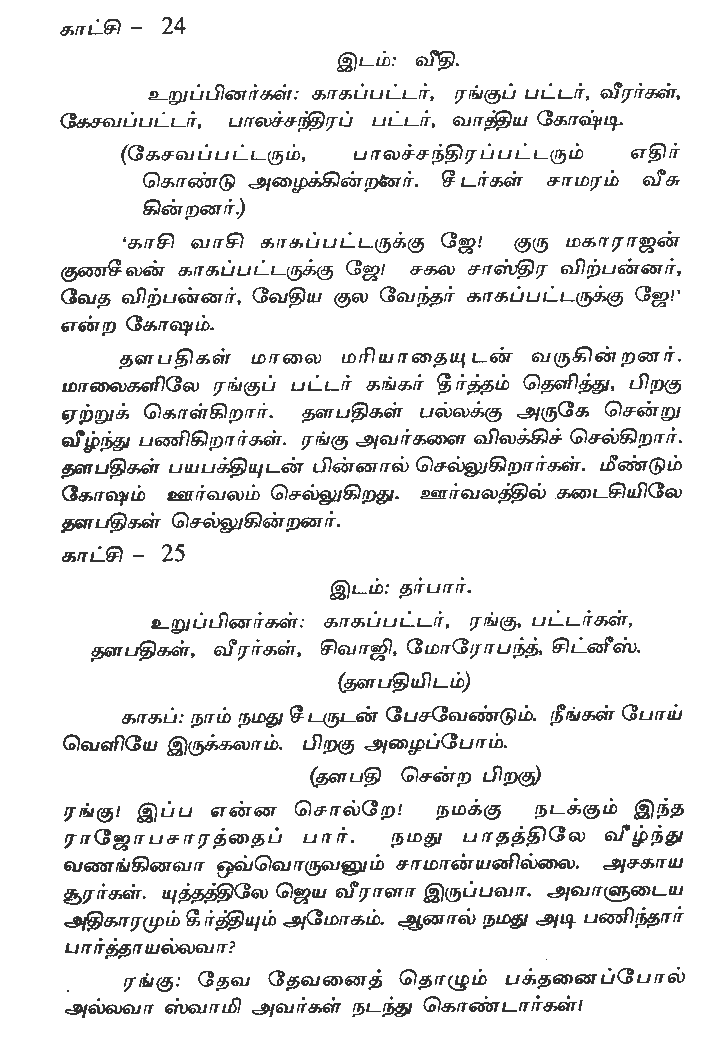 காட்சி – 24
இடம்: வீதி.
உறுப்பினர்கள்: காகப்பட்டர், ரங்குப் பட்டர், வீரர்கள்,
கேசவப்பட்டர், பாலச்சந்திரப் பட்டர், வாத்திய கோஷ்டி.
(கேசவப்பட்டரும், பாலச்சந்திரப்பட்டரும் எதிர்
கொண்டு அழைக்கின்றனர். சீடர்கள் சாமரம் வீசு
கின்றனர்.)
'காசி வாசி காகப்பட்டருக்கு ஜே! குரு மகாராஜன்
குணசீலன் காகப்பட்டருக்கு ஜே! சகல சாஸ்திர விற்பன்னர்,
வேத விற்பன்னர், வேதிய குல வேந்தர் காகப்பட்டருக்கு ஜே!'
என்ற கோஷம்.
தளபதிகள் மாலை மரியாதையுடன் வருகின்றனர்.
மாலைகளிலே ரங்குப் பட்டர் கங்கர் தீர்த்தம் தெளித்து, பிறகு
ஏற்றுக் கொள்கிறார். தளபதிகள் பல்லக்கு அருகே சென்று
வீழ்ந்து பணிகிறார்கள். ரங்கு அவர்களை விலக்கிச் செல்கிறார்.
தளபதிகள் பயபக்தியுடன் பின்னால் செல்லுகிறார்கள். மீண்டும்
கோஷம் ஊர்வலம் செல்லுகிறது. ஊர்வலத்தில் கடைசியிலே
தளபதிகள் செல்லுகின்றனர்.
காட்சி – 25
இடம்: தர்பார்.
உறுப்பினர்கள்: காகப்பட்டர், ரங்கு, பட்டர்கள்,
தளபதிகள், வீரர்கள், சிவாஜி, மோரோபந்த், சிட்னீஸ்.
(தளபதியிடம்)
காகப்: நாம் நமது சீடருடன் பேசவேண்டும். நீங்கள் போய்
வெளியே இருக்கலாம். பிறகு அழைப்போம்.
(தளபதி சென்ற பிறகு)
ரங்கு! இப்ப என்ன சொல்றே! நமக்கு நடக்கும் இந்த
ராஜோபசாரத்தைப் பார். நமது பாதத்திலே வீழ்ந்து
வணங்கினவா ஒவ்வொருவனும் சாமான்யனில்லை. அசகாய
சூரர்கள். யுத்தத்திலே ஜெய வீராளா இருப்பவா. அவாளுடைய
அதிகாரமும் கீர்த்தியும் அமோகம். ஆனால் நமது அடி பணிந்தார்
பார்த்தாயல்லவா?
ரங்கு: தேவ தேவனைத் தொழும் பக்தனைப்போல்
அல்லவா ஸ்வாமி அவர்கள் நடந்து கொண்டார்கள்!